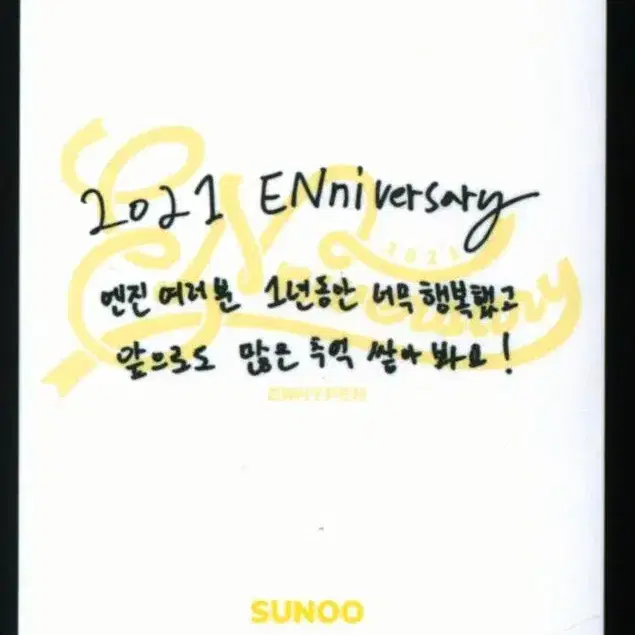 2021 ENniversary
2021
ENniversary
엔진 여러분 1년동안 너무 행복했고
앞으로도 많은 추억 쌓아 봐요!
ENHYPEN
SUNOO